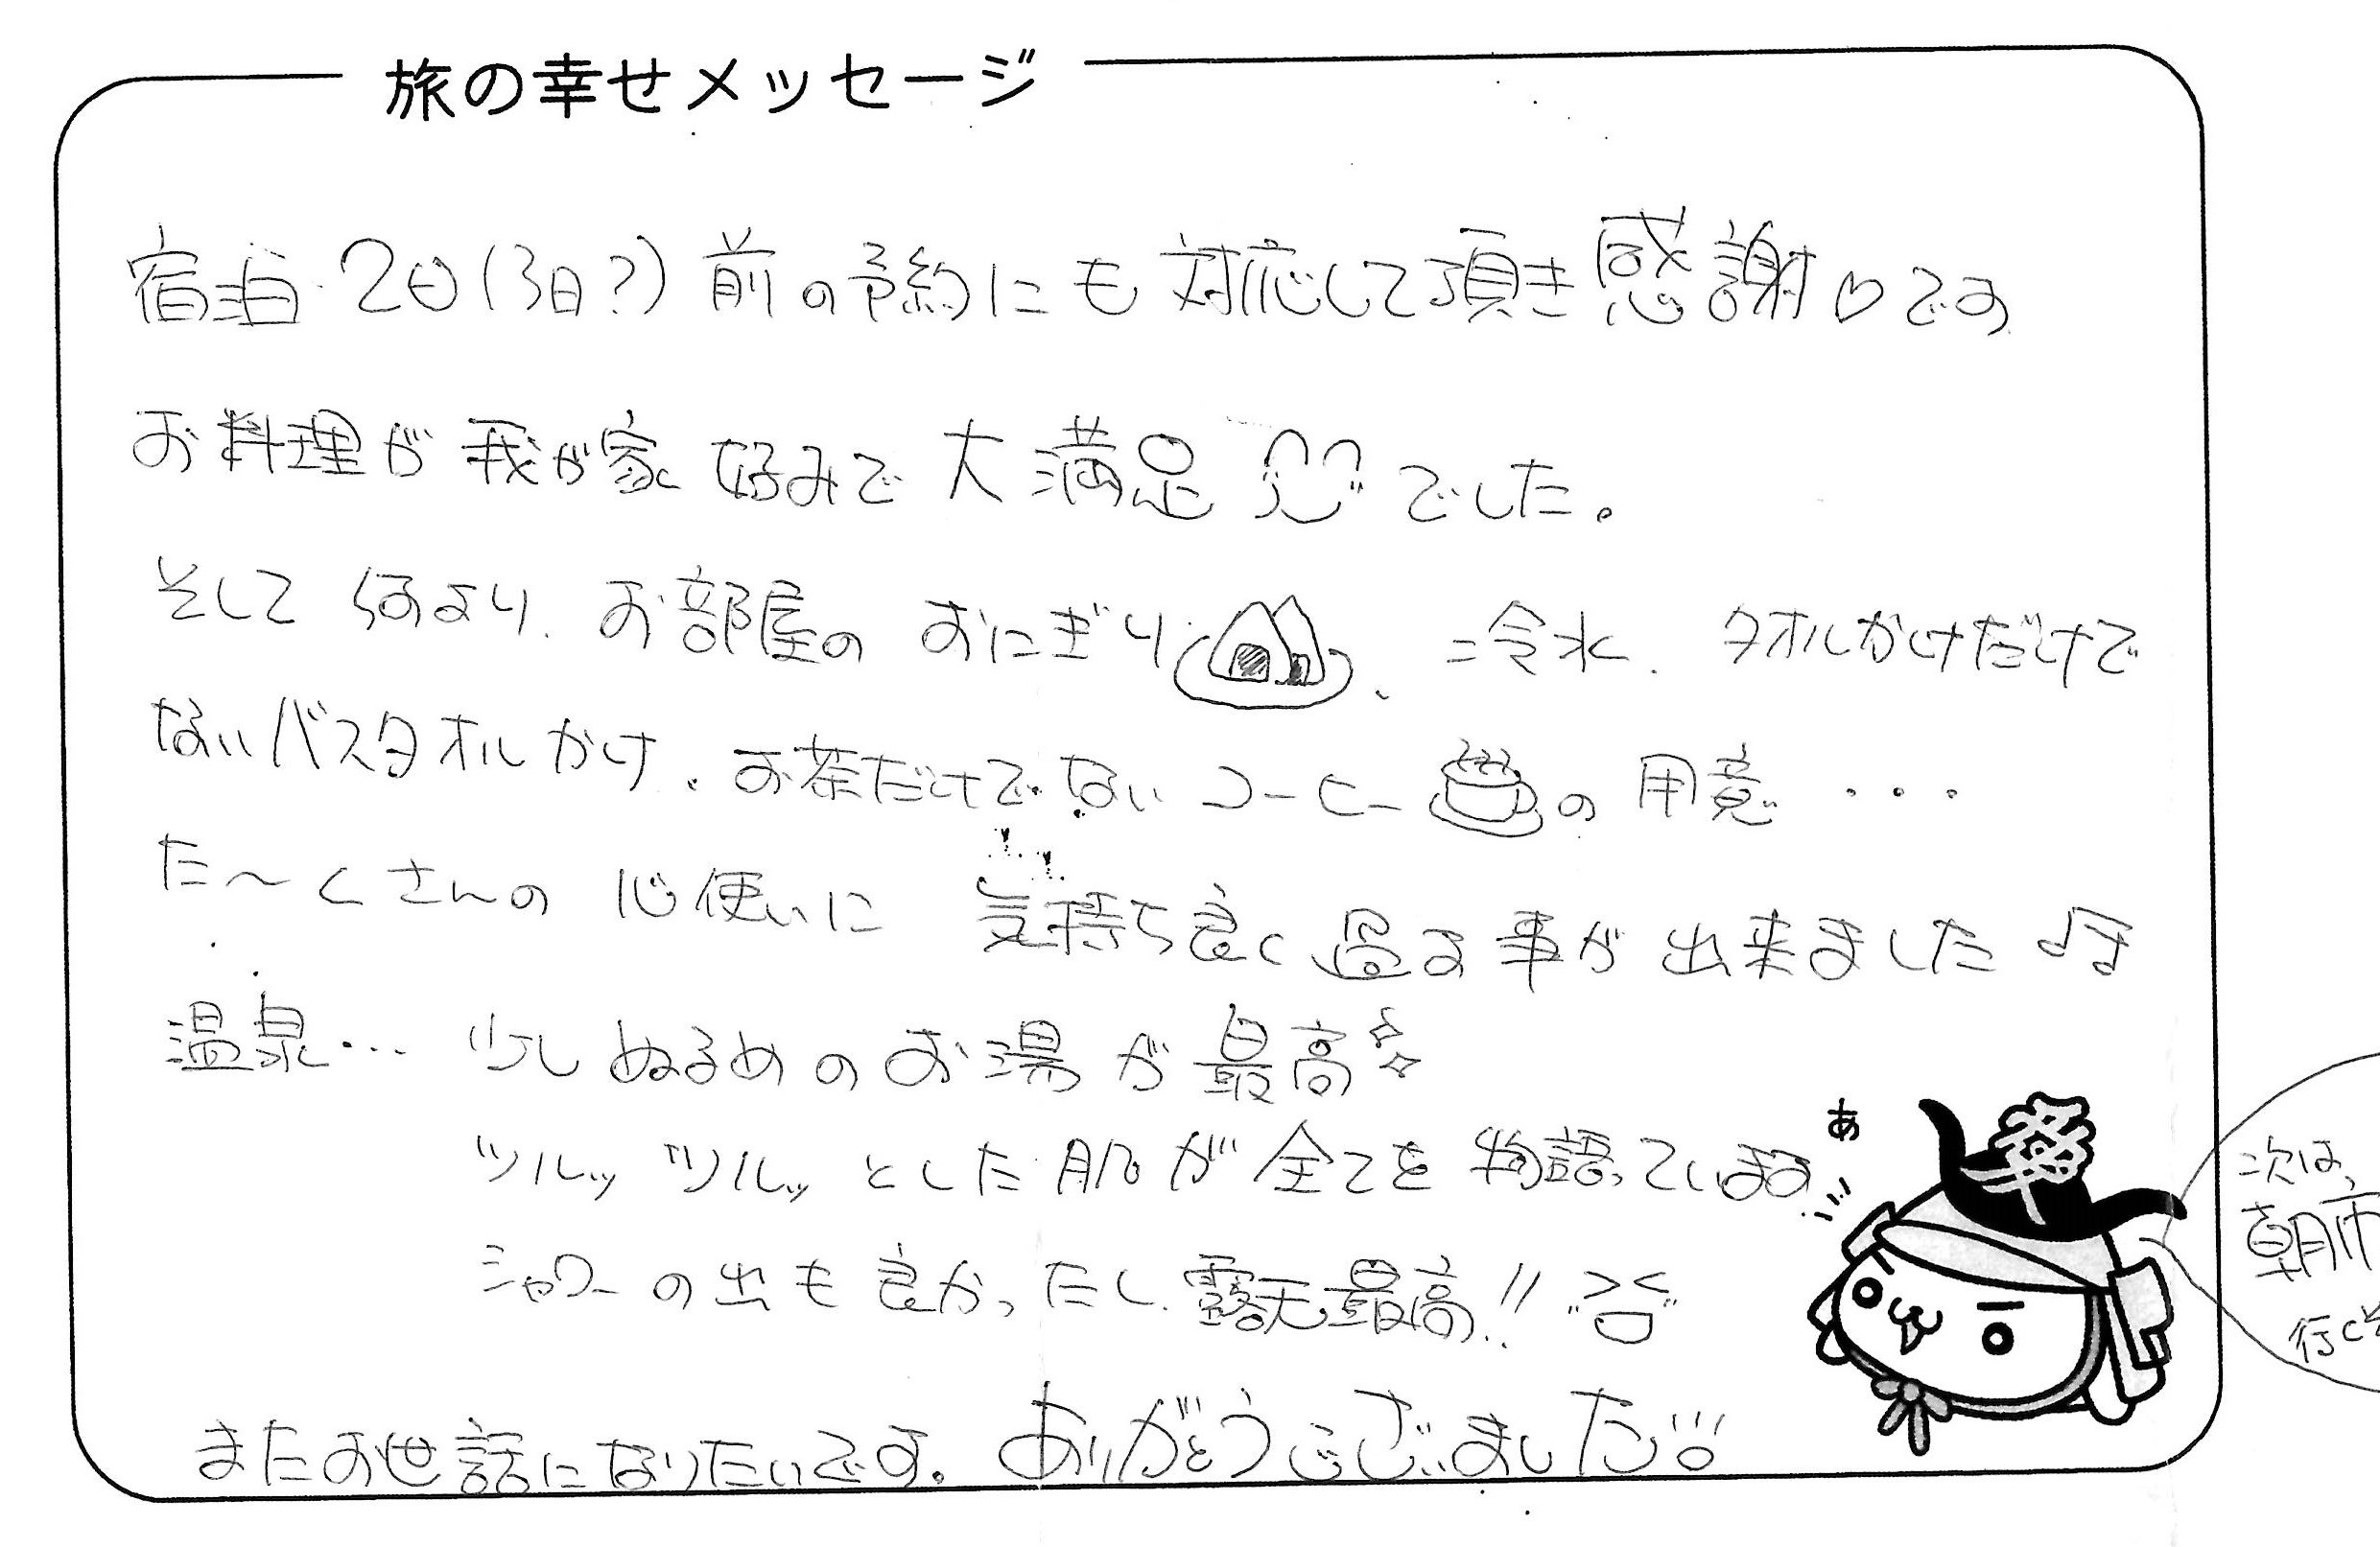 旅の幸せメッセージ
宿泊 2日(3日?)前の予約にも対応して頂き感謝♡です
お料理が我が家好みで大満足でした。
そして何より、お部屋のおにぎり、冷水、タオルかけだけで
ないバスタオルかけ、お茶だけでないコーヒーの用意・・・
た〜くさんの心使いに気持ち良く過す事が出来ました♪
温泉… 少しぬるめのお湯が最高
ツルッツルッとした肌が全てを物語っています
シャワーの出も良かったし、露天最高!!
またお世話になりたいです。ありがとうございました
あ
幸
次は、
朝市
行く